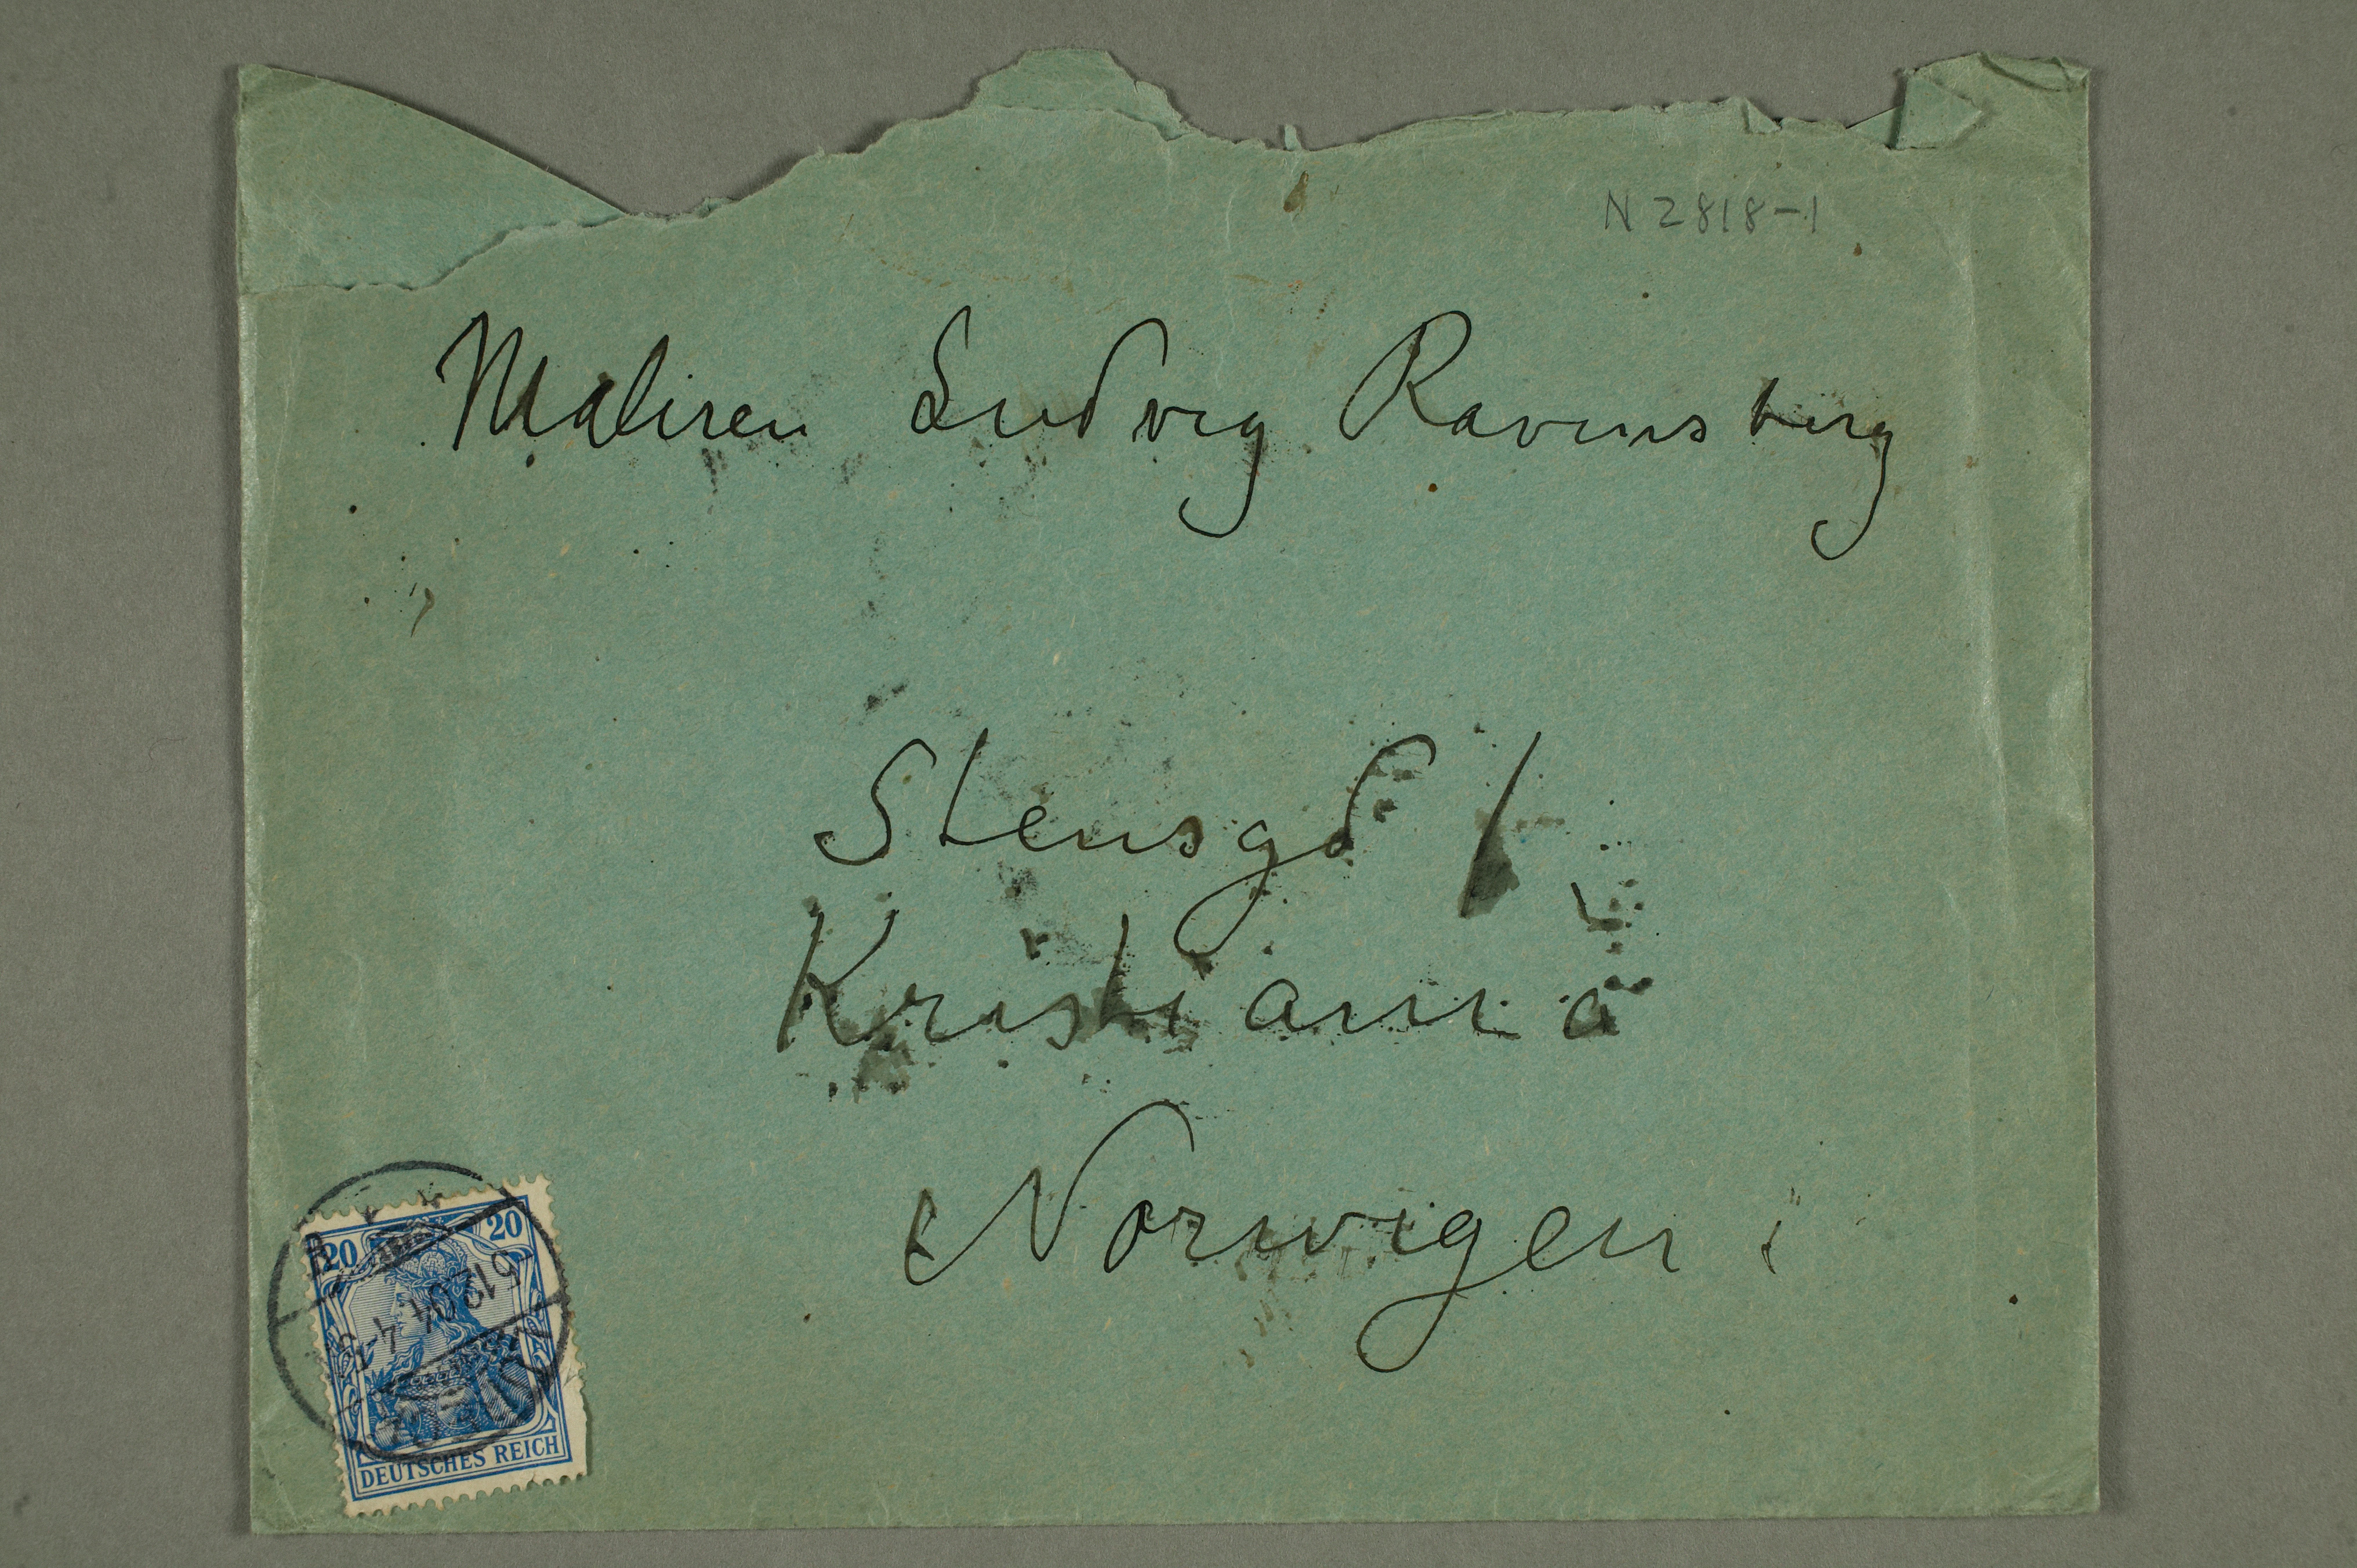 N 2818-1
Maleren Ludvig Ravensberg
Stensgd 1
Kristiania
Norwigen
20 20
5 12 04 4-5
DEUTSCHES REICH